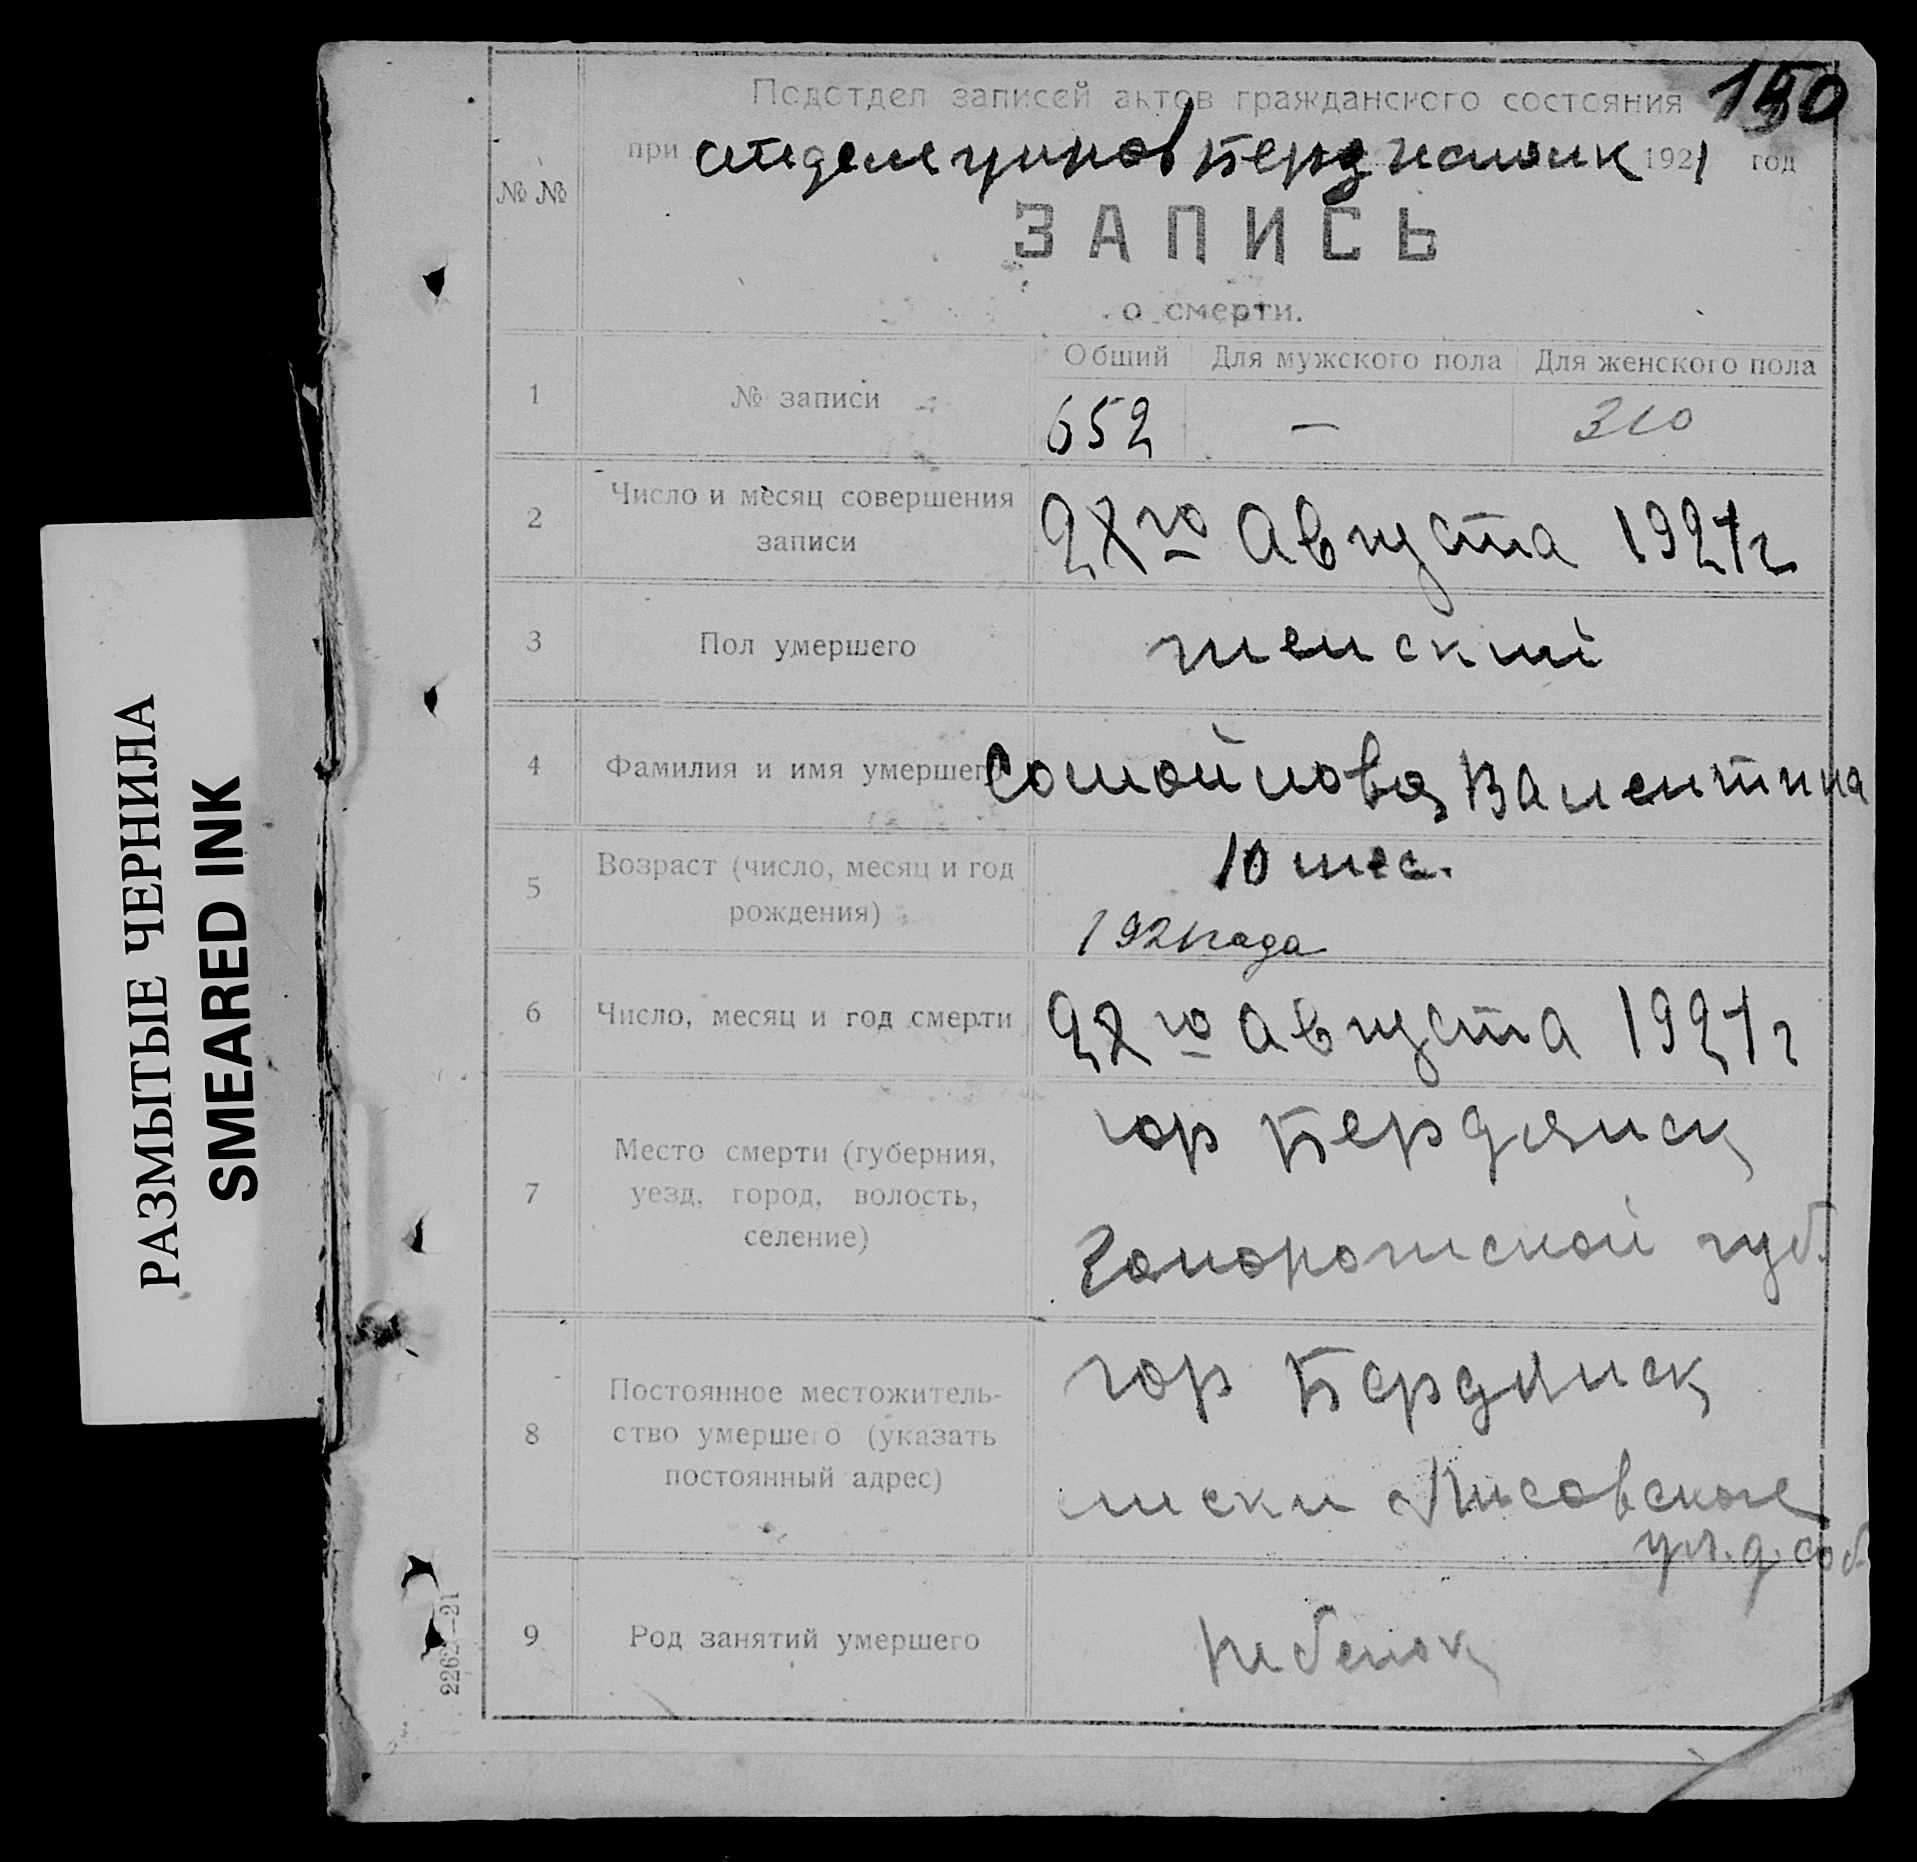 150
Подотдел записей актов гражданского состояния
при отделе управ Берд исполк 1921 год
№ №
ЗАПИСЬ
о смерти.
Общий Для мужского пола Для женского пола
1 № записи 652 — 310
2 Число и месяц совершения записи
го Августа 1921 г
3 Пол умершего женский
4 Фамилия и имя умершего Самойлова Валентина
5 Возраст (число, месяц и год рождения)
10 мес.
1921 года
6 Число, месяц и год смерти го Августа 1921 г
7 Место смерти (губерния,
уезд, город, волость,
селение)
гор Бердянск
Запорожской губ.
8 Постоянное местожитель-
ство умершего (указать
постоянный адрес)
гор Бердянск
лиски Лисовская
ул. д. соб
9 Род занятий умершего ребенок
РАЗМЫТЫЕ ЧЕРНИЛА
SMEARED INK